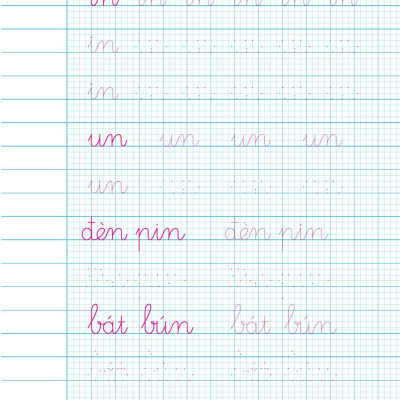 in in in in in in
in
in
un un un un
un
đèn pin đèn pin
bát bún bát bún